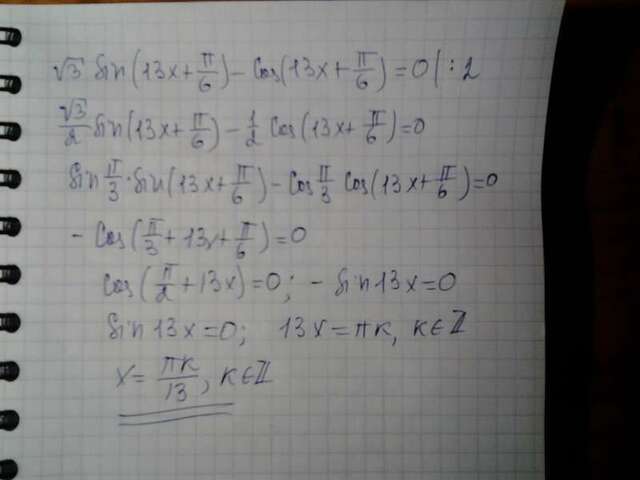 √3 Sin(13x+π/6)-Cos(13x+π/6)=0|:2
√3/2 Sin(13x+π/6)-1/2 Cos(13x+π/6)=0
Sin π/3·Sin(13x+π/6)-Cos π/3 Cos(13x+π/6)=0
-Cos(π/3+13x+π/6)=0
Cos(π/2+13x)=0; -Sin13x=0
Sin13x=0; 13x=πk, k∈ℤ
x=πk/13, k∈ℤ